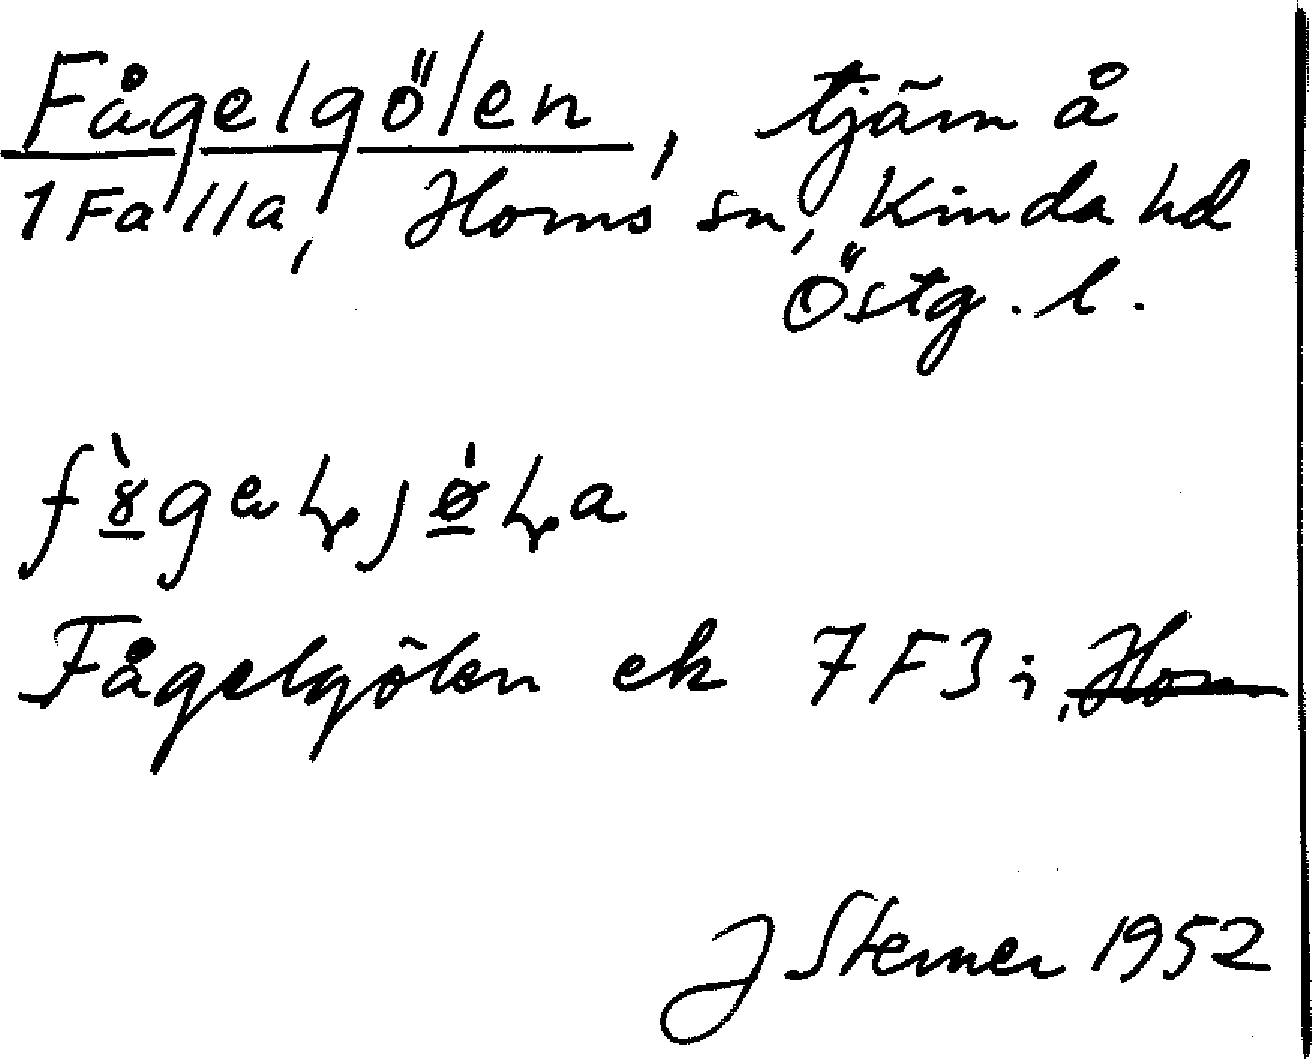 Fågelgölen, tjärn å
1 Falla, Horns sn, Kinda hd
Östg. l.
Fågelgölen ek 7F3i, Horn
J Sterner 1952